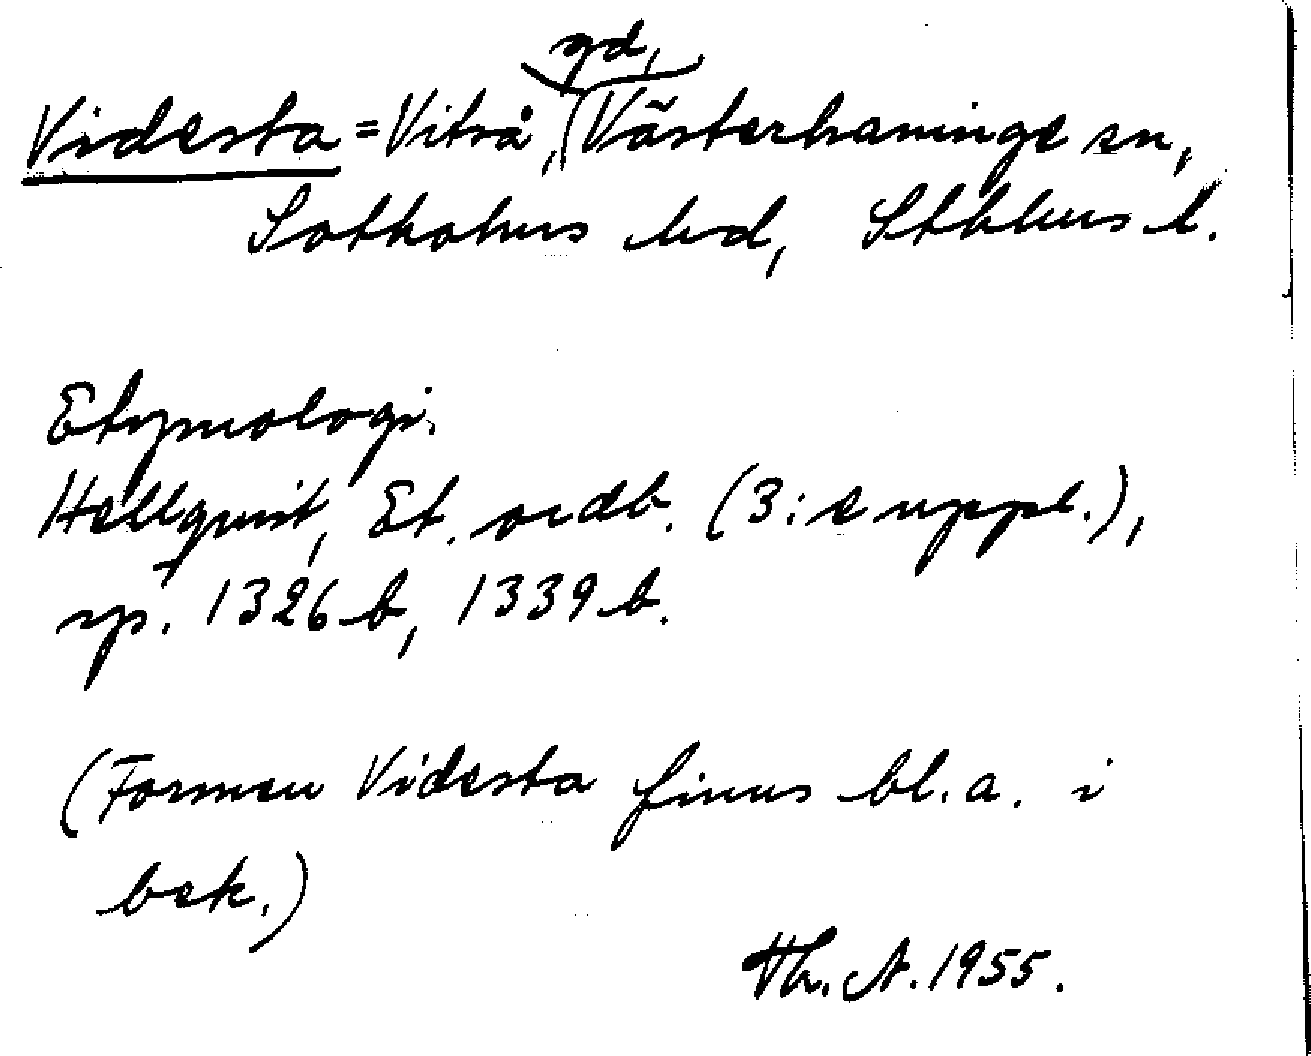 Videsta = Vitså, gd, Västerhaninge sn,
Sotholms hd, Sthlms l.
Etymologi.
Hellquist, Et. ordb. (3:e uppl.),
sp. 1326 b, 1339 b.
(Formen Videsta finns bl.a. i
bek.)
Th. A. 1955.